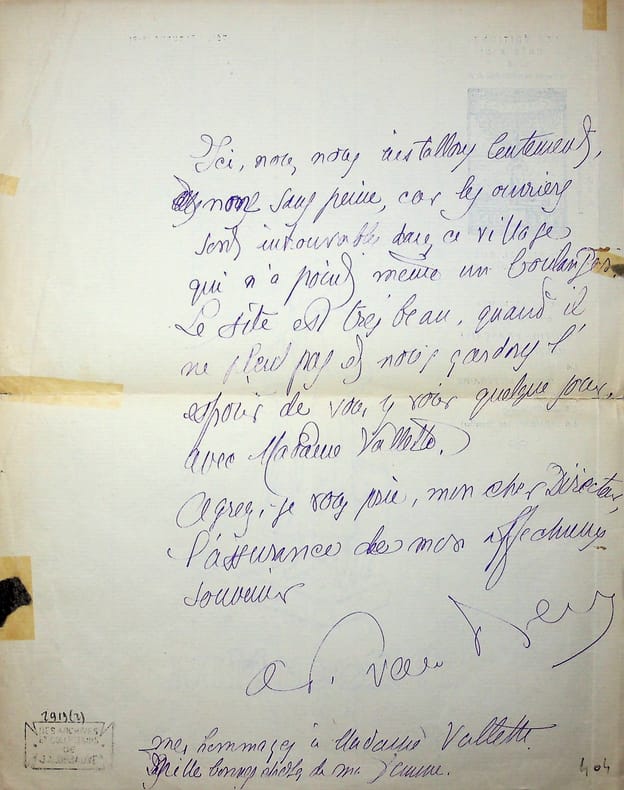 Ici, nous nous installons lentement,
et non sans peine, car les ouvriers
sont introuvables dans ce village
qui n'a point même un boulanger.
Le site est très beau, quand il
ne pleut pas et nous gardons l'
espoir de vous y voir quelque jour,
avec Madame Vallette.
Agréez, je vous prie, mon cher Directeur,
l'assurance de mon affectueux
souvenir
A. F. van
mes hommages à Madame Vallette.
Mille bonnes choses de ma femme.
2913(2)
DES ARCHIVES
ET COLLECTIONS
DE
404